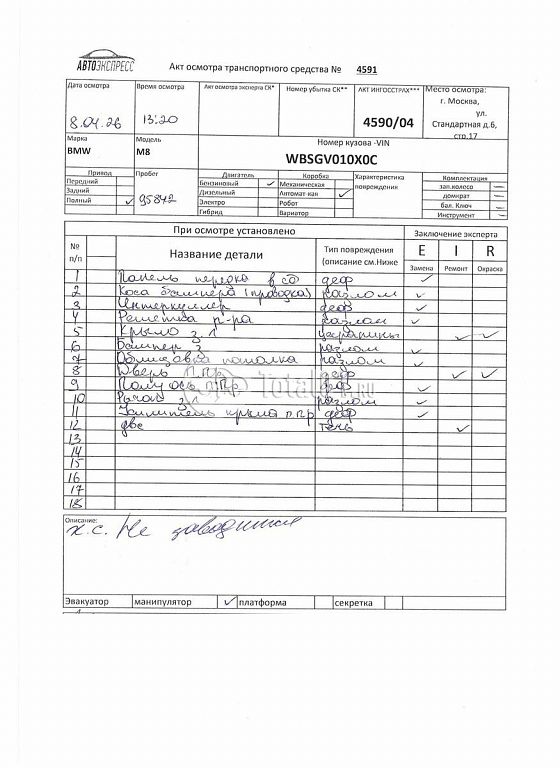 АВТОЭКСПРЕСС
Акт осмотра транспортного средства № 4591
Дата осмотра
8.04.26
Время осмотра
13:20
Акт осмотра эксперта СК*
Номер убытка СК**
АКТ ИНГОССТРАХ***
4590/04
Место осмотра:
г. Москва,
ул.
Стандартная д.6,
стр.17
Марка
BMW
Модель
M8
Номер кузова -VIN
WBSGV010X0C
Привод
Передний
Задний
Полный ✓
Пробег
95842
Двигатель
Бензиновый ✓
Дизельный
Электро
Гибрид
Коробка
Механическая
Автомат-кая ✓
Робот
Вариатор
Характеристика
повреждений
Комплектация
зап.колесо —
домкрат —
бал. Ключ —
Инструмент —
При осмотре установлено
Заключение эксперта
№
п/п
Название детали
Тип повреждения
(описание см.Ниже
E I R
Замена Ремонт Окраска
1 Панель передка в сб деф ✓
2 Коса бампера (проводка) разлом ✓
3 Интеркуллер деф ✓
4 Решетка р-ра разлом ✓
5 Крыло з л царапины ✓ ✓
6 Бампер з разлом ✓
7 Облицовка потолка разлом ✓
8 Дверь п.пр деф ✓ ✓
9 Полуось п.пр деф ✓
10 Рычаг з л разлом ✓
11 Усилитель крыла п пр деф ✓
12 двс течь ✓
13
14
15
16
17
18
Total01.ru
Описание:
х.с. Не заводится
Эвакуатор
манипулятор ✓
платформа
секретка